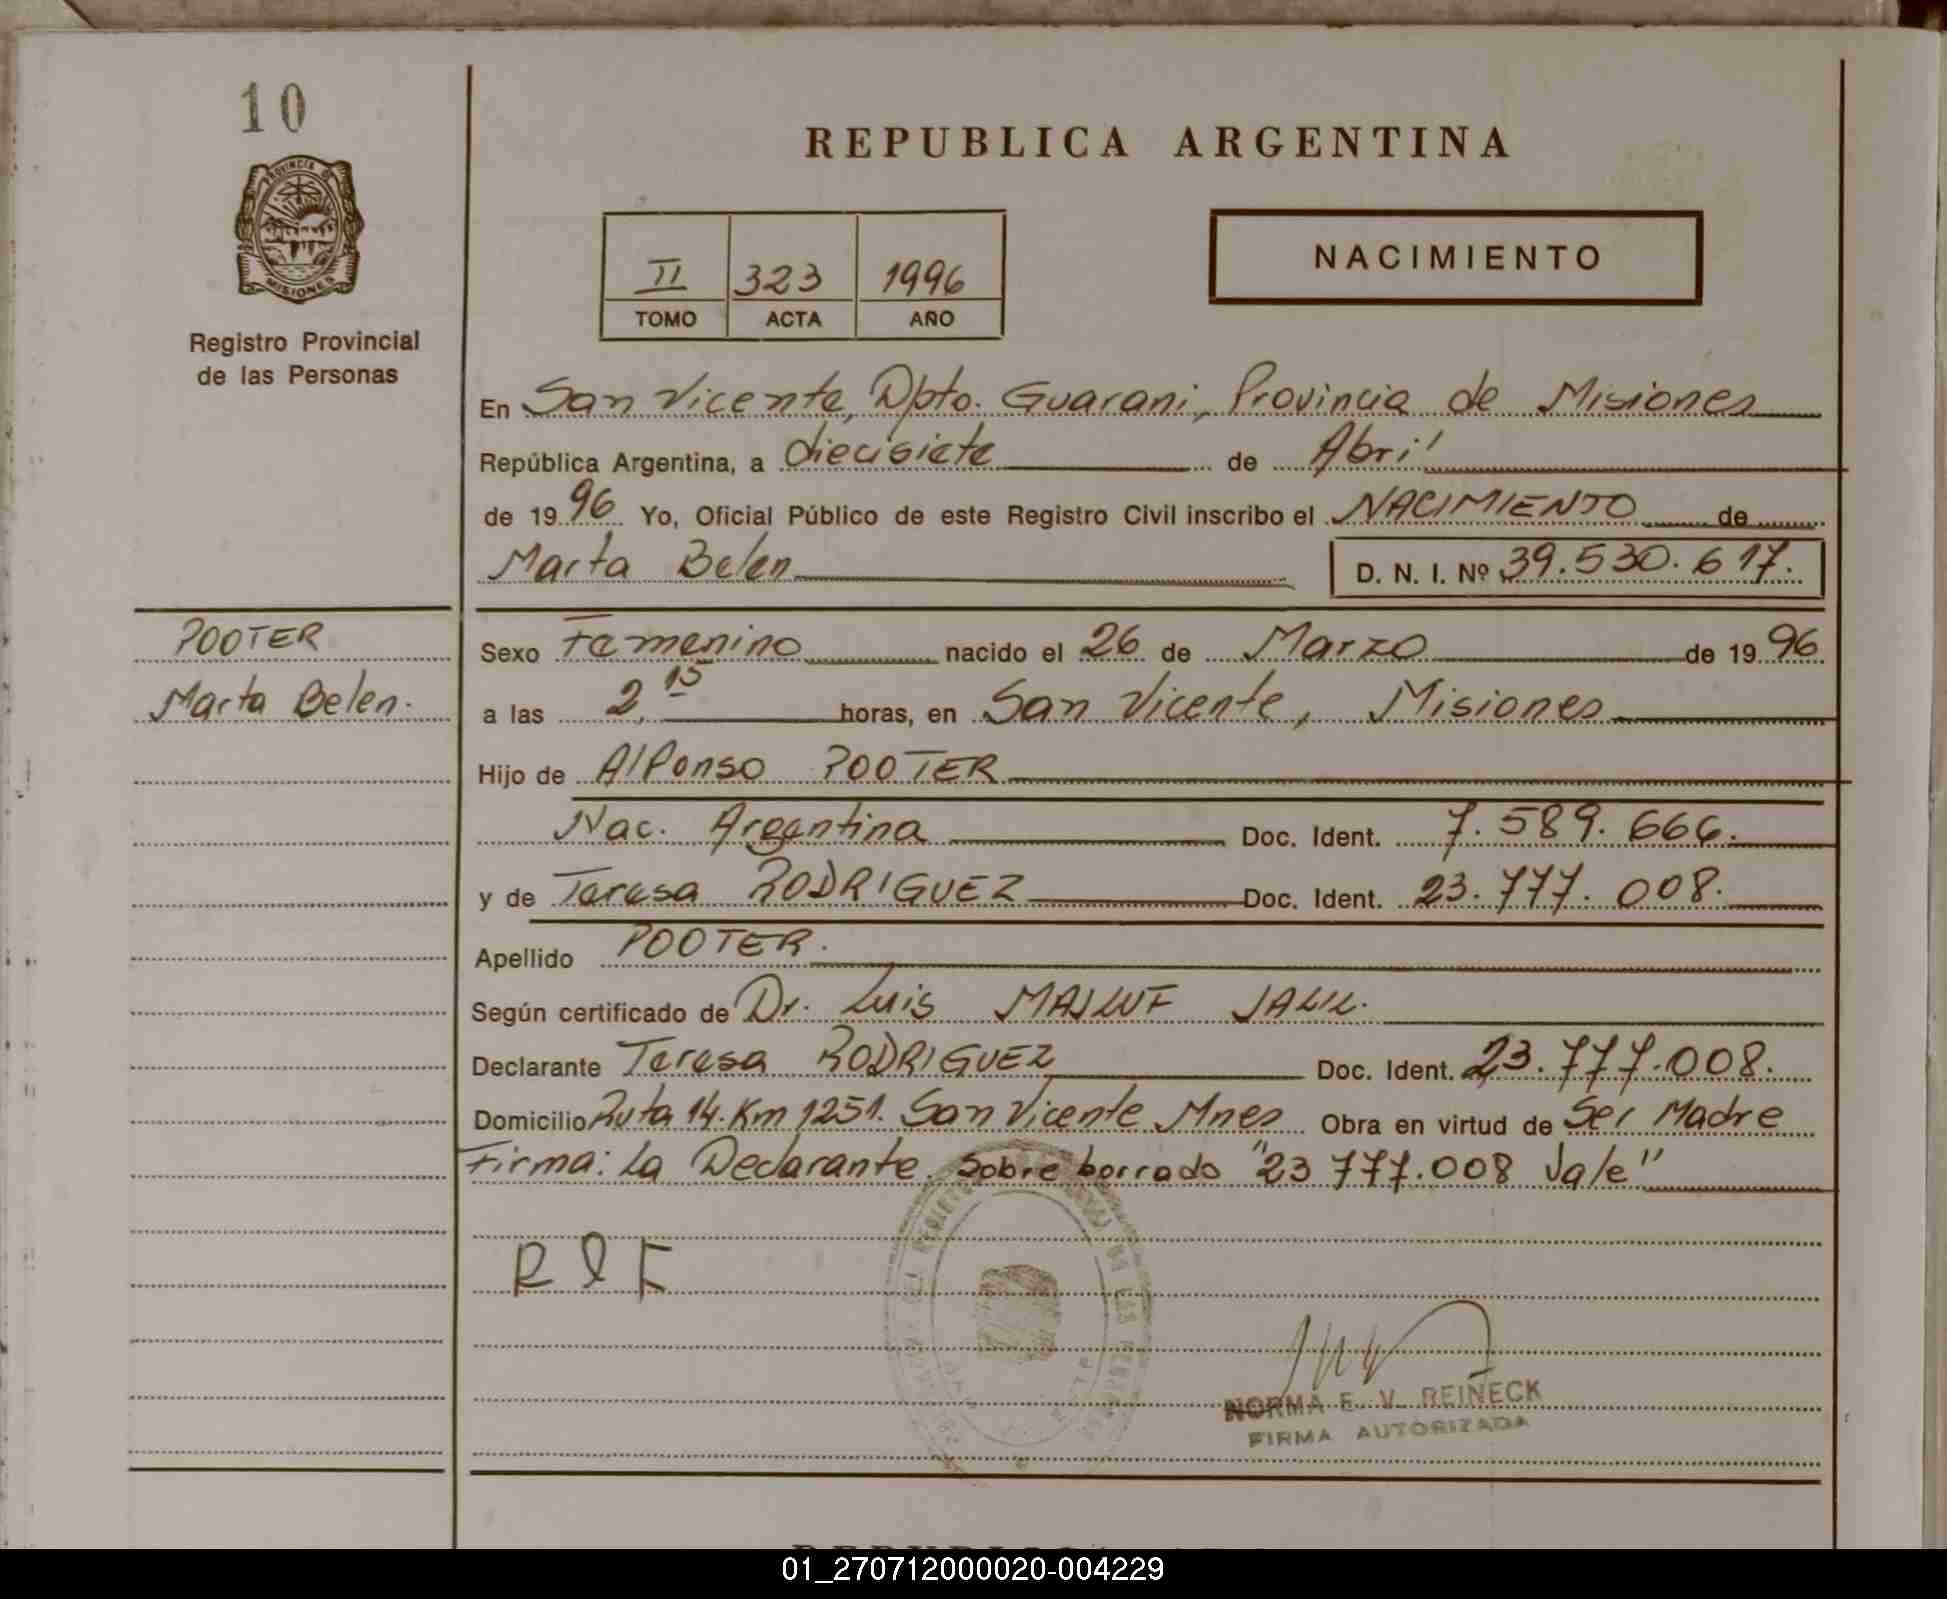 10
PROVINCIA DE
MISIONES
Registro Provincial
de las Personas
REPUBLICA ARGENTINA
II 323 1996
TOMO ACTA AÑO
NACIMIENTO
En San Vicente, Dpto. Guarani, Provincia de Misiones
República Argentina, a diecisiete de Abril
de 1996 Yo, Oficial Público de este Registro Civil inscribo el NACIMIENTO de
Marta Belen D. N. I. Nº 39.530.617.
POOTER
Marta Belen.
Sexo Femenino nacido el 26 de Marzo de 1996
a las 2,15 horas, en San Vicente, Misiones
Hijo de Alfonso POOTER
Nac. Argentina Doc. Ident. 7.589.666.
y de Teresa RODRIGUEZ Doc. Ident. 23.777.008.
Apellido POOTER.
Según certificado de Dr. Luis MAJLUF JALIL.
Declarante Teresa RODRIGUEZ Doc. Ident. 23.777.008.
Domicilio Ruta 14. Km 1251. San Vicente Mnes Obra en virtud de Ser Madre
Firma: La Declarante. Sobre borrado "23 777.008 Vale"
NORMA E. V. REINECK
FIRMA AUTORIZADA
01_270712000020-004229